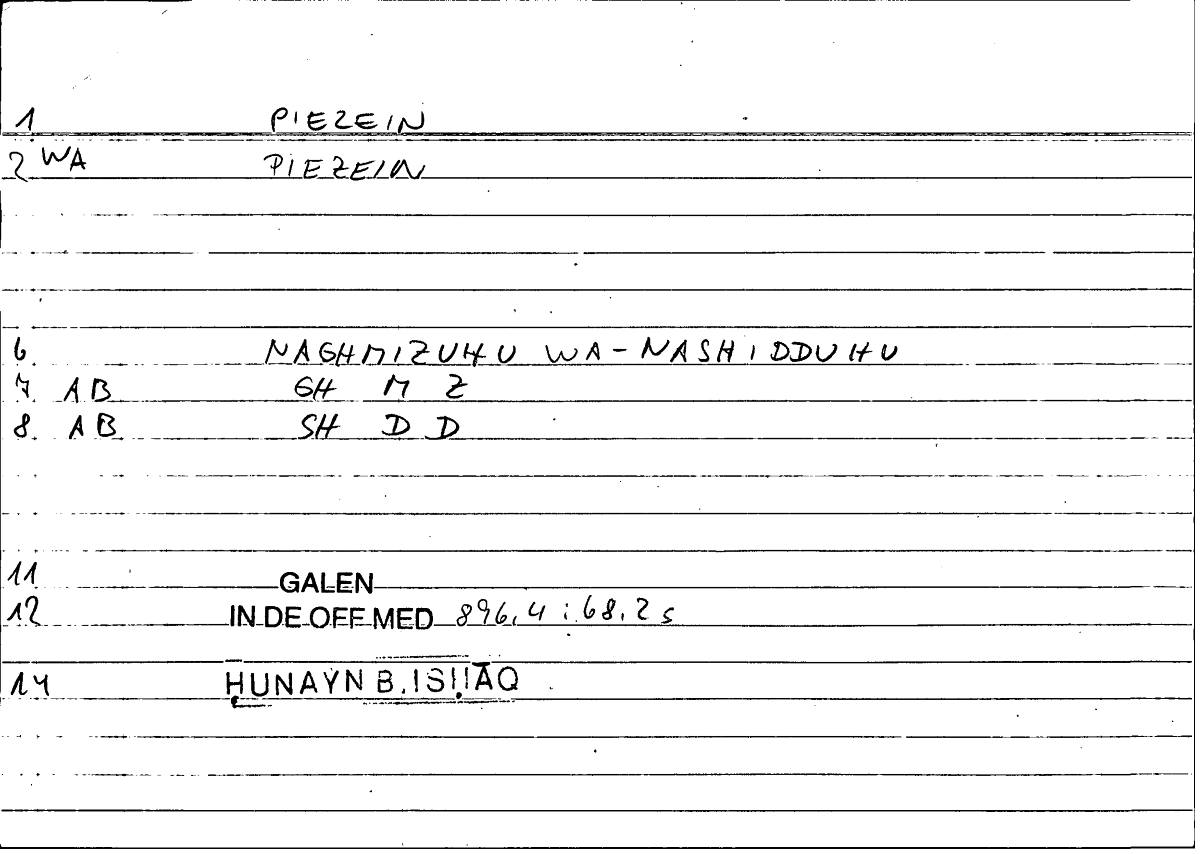 1 PIEZEIN
2 WA PIEZEIN
6. NAGHMIZUHU WA-NASHIDDUHU
7. AB GH M Z
8. AB SH D D
11 GALEN
12 IN DE OFF MED 896,4 : 68,2 s
14 ḤUNAYN B. ISḤĀQ